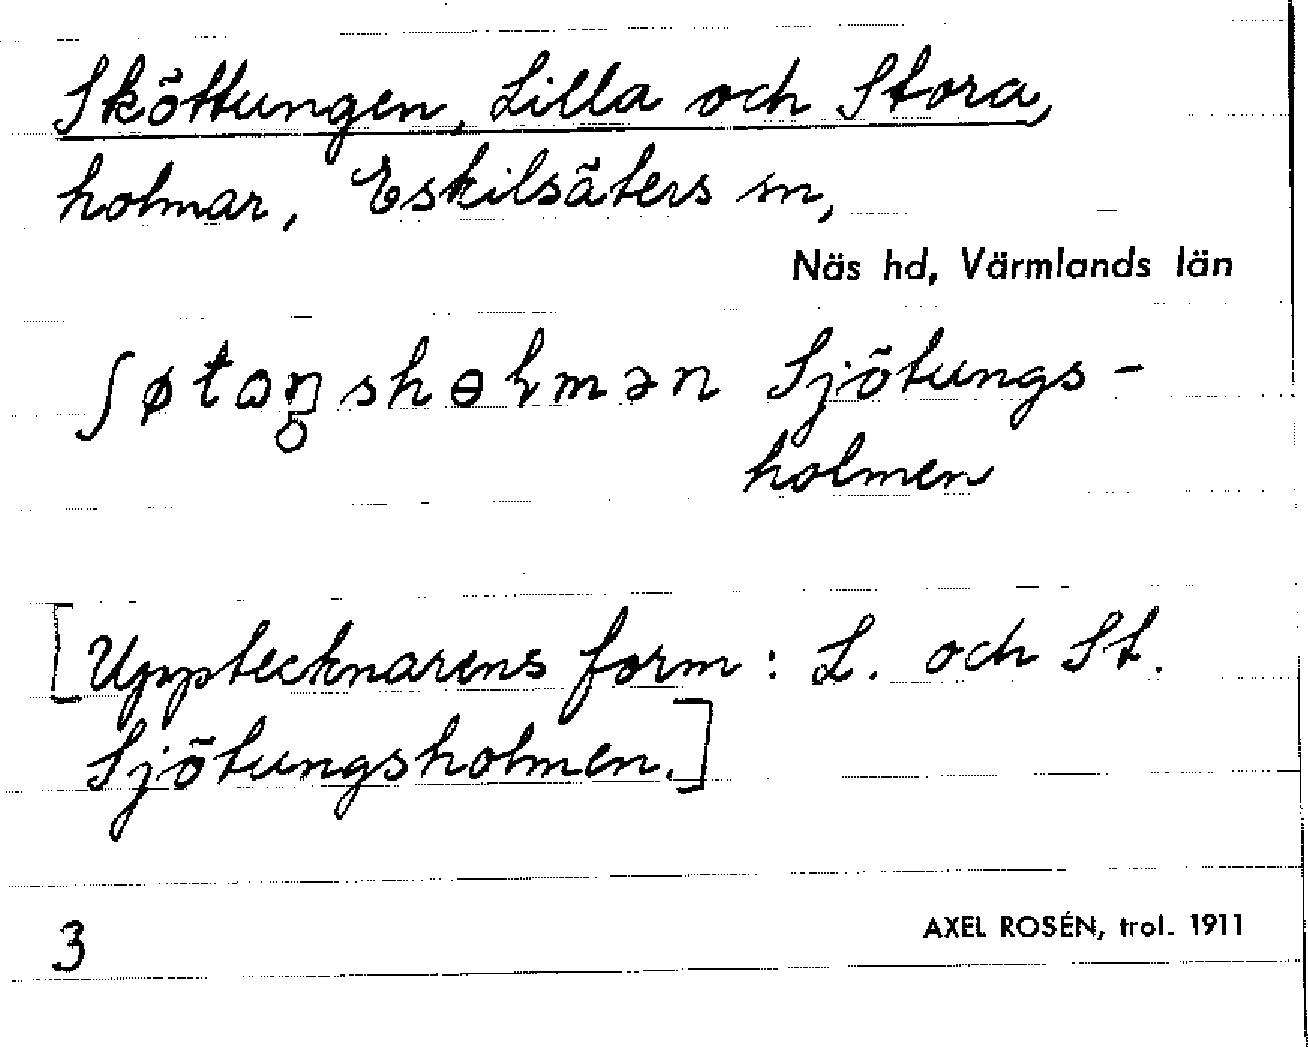 Sköttungen, Lilla och Stora,
holmar, Eskilsäters sn,
Näs hd, Värmlands län
Sjötungs-
holmen
[Upptecknarens form: L. och St.
Sjötungsholmen.]
3
AXEL ROSÉN, trol. 1911